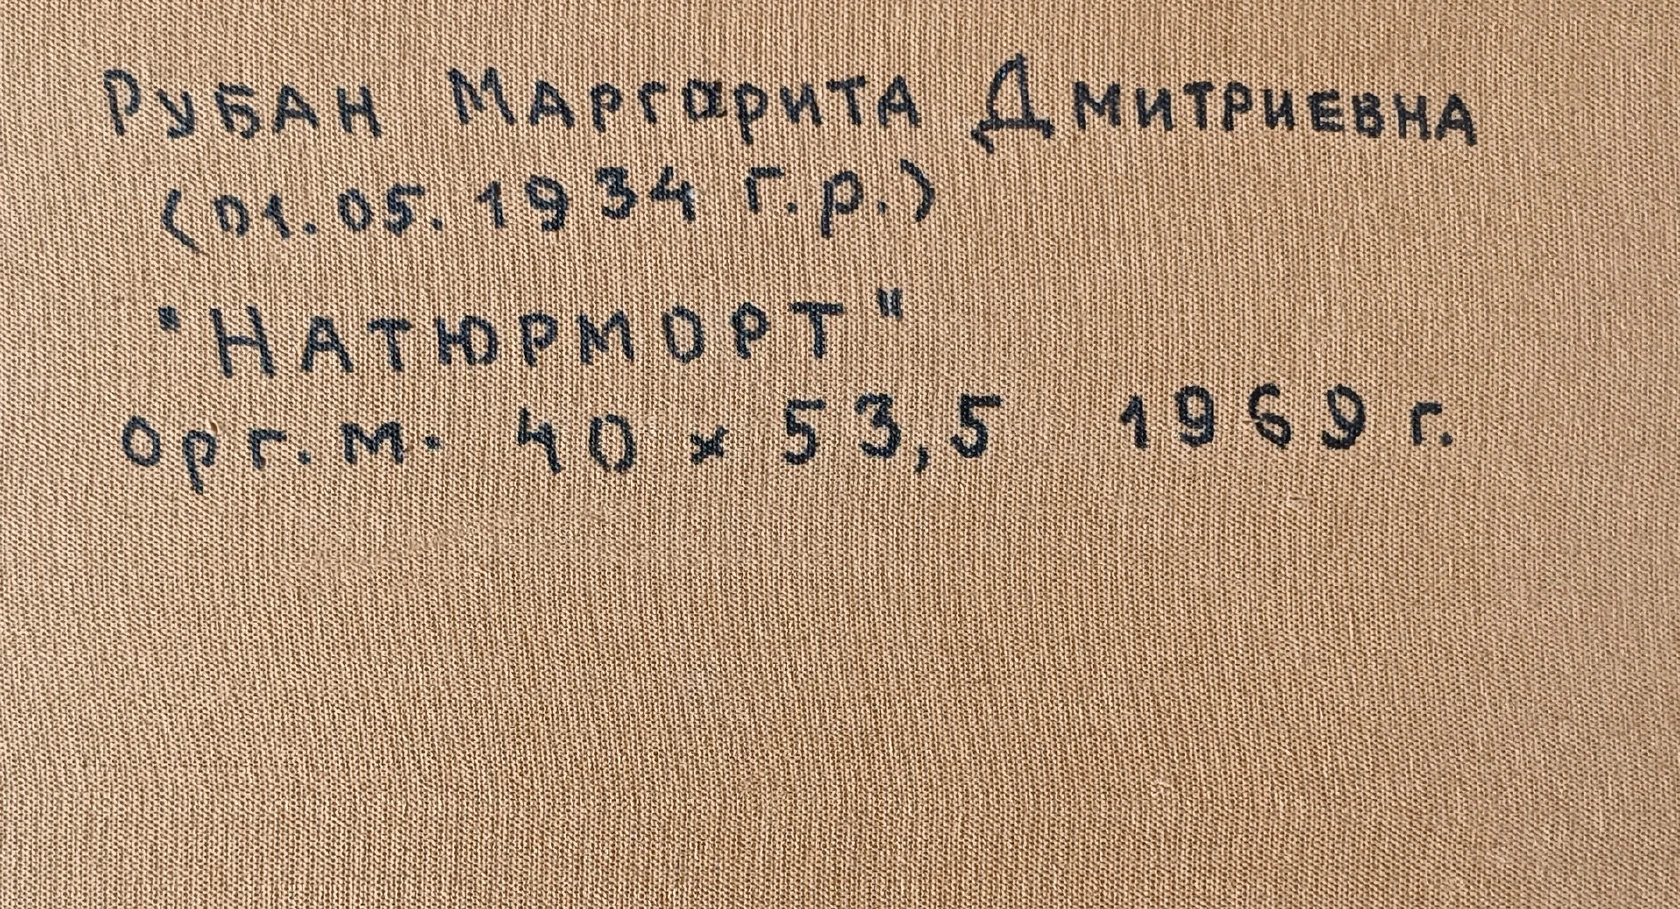 Рубан Маргарита Дмитриевна
(01.05.1934 г.р.)
"Натюрморт"
орг.м. 40 x 53,5 1969 г.